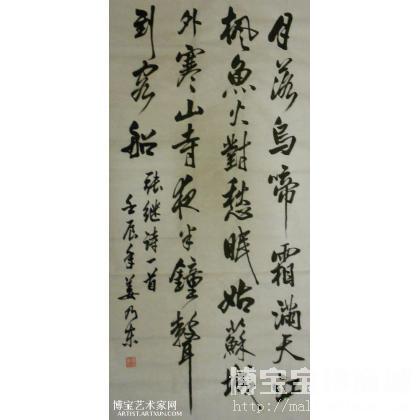 月落烏啼霜滿天江
楓魚火對愁眠姑蘇城
外寒山寺夜半鐘聲
到客船
张继诗一首
壬辰年姜乃东
博宝艺术家网
ARTIST.ARTXUN.COM
博宝
http://mal